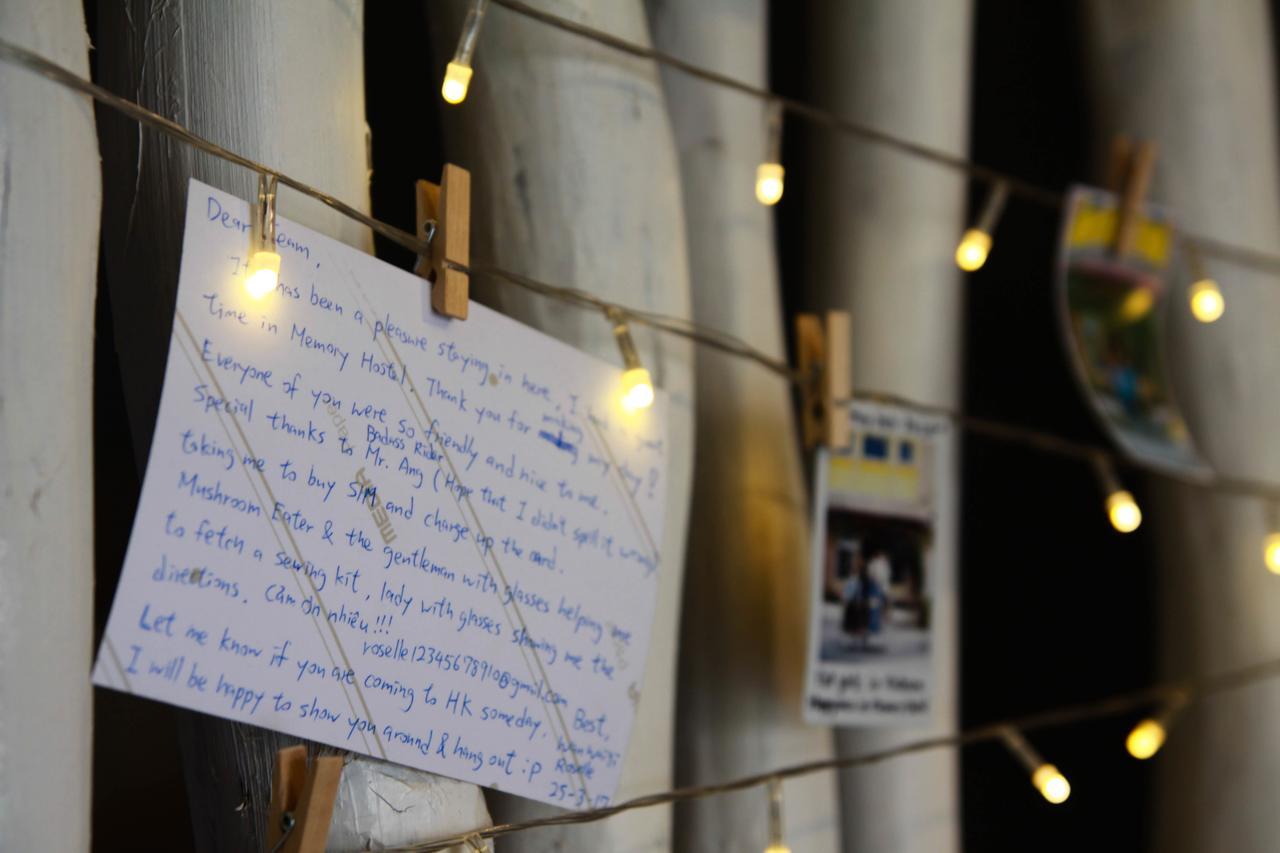 Dear Team,
It has been a pleasure staying in here, I
time in Memory Hostel. Thank you for making my day!
Everyone of you were so friendly and nice to me.
Badass Rider
Special thanks to Mr. Ang (Hope that I didn't spell it wrong)
taking me to buy SIM and charge up the card.
Mushroom Eater & the gentleman with glasses helping me
to fetch a sewing kit, lady with glasses showing me the
directions. Cảm ơn nhiều!!!
roselle12345678910@gmail.com
Let me know if you are coming to HK someday. Best,
I will be happy to show you around & hang out :p Roselle
25-3-17